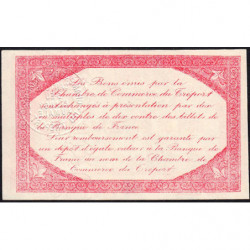 Les Bons émis par la
Chambre de Commerce du Tréport
sont échangés à présentation par dix
ou multiples de dix contre des billets de
la Banque de France
Leur remboursement est garanti par
un dépôt d'égale valeur à la Banque de
France au nom de la Chambre de
Commerce du Tréport